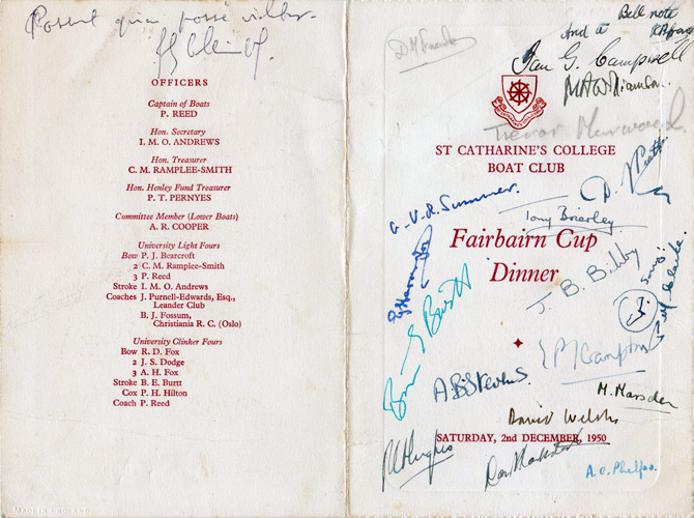 OFFICERS
Captain of Boats
P. REED
Hon. Secretary
I. M. O. ANDREWS
Hon. Treasurer
C. M. RAMPLEE-SMITH
Hon. Henley Fund Treasurer
P. T. PERNYES
Committee Member (Lower Boats)
A. R. COOPER
University Light Fours
Bow P. J. Bearcroft
2 C. M. Ramplee-Smith
3 P. Reed
Stroke I. M. O. Andrews
Coaches J. Purnell-Edwards, Esq.,
Leander Club
B. J. Fossum,
Christiania R. C. (Oslo)
University Clinker Fours
Bow R. D. Fox
2 J. S. Dodge
3 A. H. Fox
Stroke B. E. Burtt
Cox P. H. Hilton
Coach P. Reed
MADE IN ENGLAND
And a Bell note
Ian G. Campbell
Trevor Marwood.
ST CATHARINE'S COLLEGE
BOAT CLUB
G. V. R. Summer.
Tony Brierley
Fairbairn Cup
Dinner
J. B. Bibby
Crampton
M. Marsden
David Welsh
SATURDAY, 2nd DECEMBER, 1950
Hughes
A. C. Phelps.